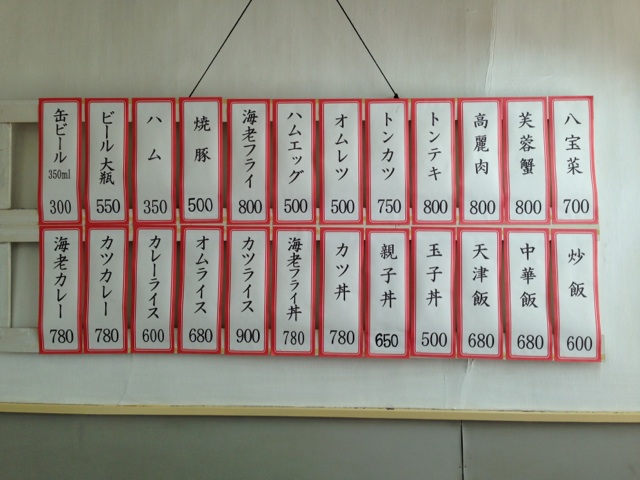 八宝菜 700
芙蓉蟹 800
高麗肉 800
トンテキ 800
トンカツ 750
オムレツ 500
ハムエッグ 500
海老フライ 800
焼豚 500
ハム 350
ビール大瓶 550
缶ビール 350ml 300
炒飯 600
中華飯 680
天津飯 680
玉子丼 500
親子丼 650
カツ丼 780
海老フライ丼 780
カツライス 900
オムライス 680
カレーライス 600
カツカレー 780
海老カレー 780